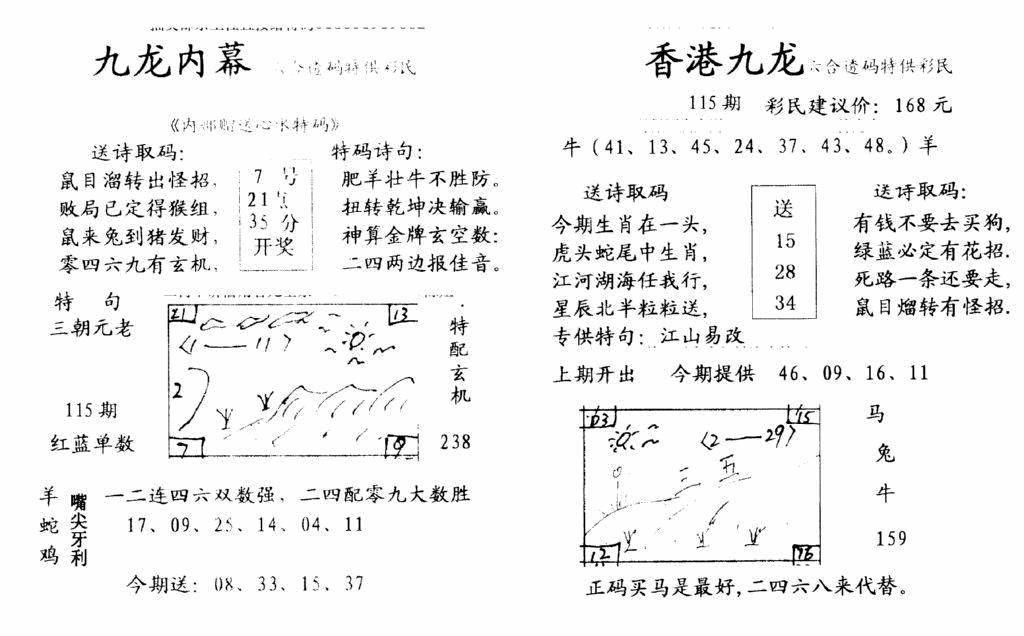 九龙内幕
合造码特供彩民
《内部赠送心水特码》
送诗取码：
鼠目溜转出怪招，
败局已定得猴组，
鼠来兔到猪发财，
零四六九有玄机，
7 号
21点
35 分
开奖
特码诗句：
肥羊壮牛不胜防。
扭转乾坤决输赢。
神算金牌玄空数：
二四两边报佳音。
特 句
三朝元老
115期
红蓝单数
21
13
〈1——11〉
2
7
9
特配玄机
238
羊
蛇
鸡
嘴尖牙利
一二连四六双数强，二四配零九大数胜
17、09、25、14、04、11
今期送：08、33、15、37
香港九龙
六合造码特供彩民
115期 彩民建议价：168元
牛（41、13、45、24、37、43、48。）羊
送诗取码
今期生肖在一头，
虎头蛇尾中生肖，
江河湖海任我行，
星辰北半粒粒送，
专供特句：江山易改
送
15
28
34
送诗取码：
有钱不要去买狗，
绿蓝必定有花招．
死路一条还要走，
鼠目熘转有怪招．
上期开出 今期提供 46、09、16、11
03
15
〈2——29〉
三 五
12
马
兔
牛
159
正码买马是最好，二四六八来代替。